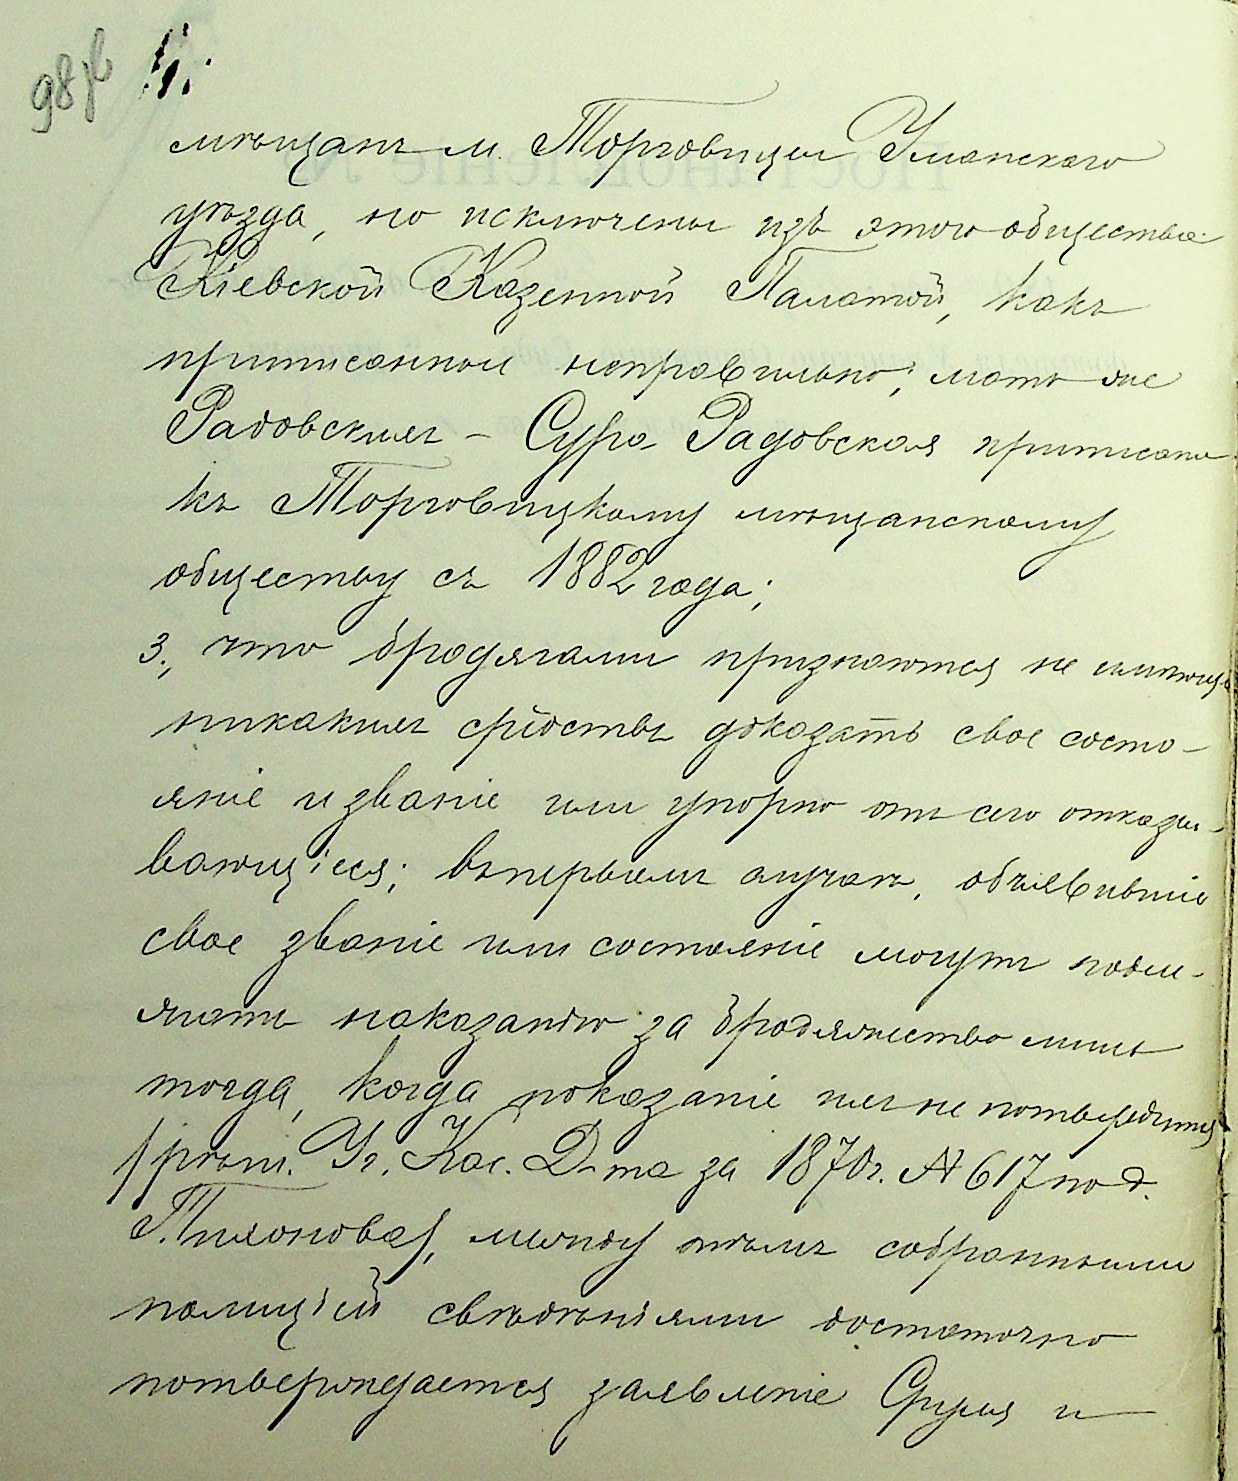 98 об
мѣщанъ м. Торговицы Уманскаго
уѣзда, но исключены изъ этого общества
Кіевской Казенной Палатой, какъ
приписанные неправильно; мать же
Радовскихъ – Сура Радовская приписана
къ Торговицкому мѣщанскому
обществу съ 1882 года;
3., что бродягами признаются не имѣющіе
никакихъ средствъ доказать свое состо-
яніе и званіе или упорно отъ сего отказы-
вающіеся; въ первыхъ случаяхъ, объявившіе
свое званіе или состояніе могутъ подле-
жать наказанію за бродяжество лишь
тогда, когда показаніе ихъ не потвердится
/рѣш. Уг. Кас. Д-та за 1870г. № 617 по д.
Тихонова/, между тѣмъ собранными
полиціей свѣдѣніями достаточно
потверждается заявленіе Сруля и